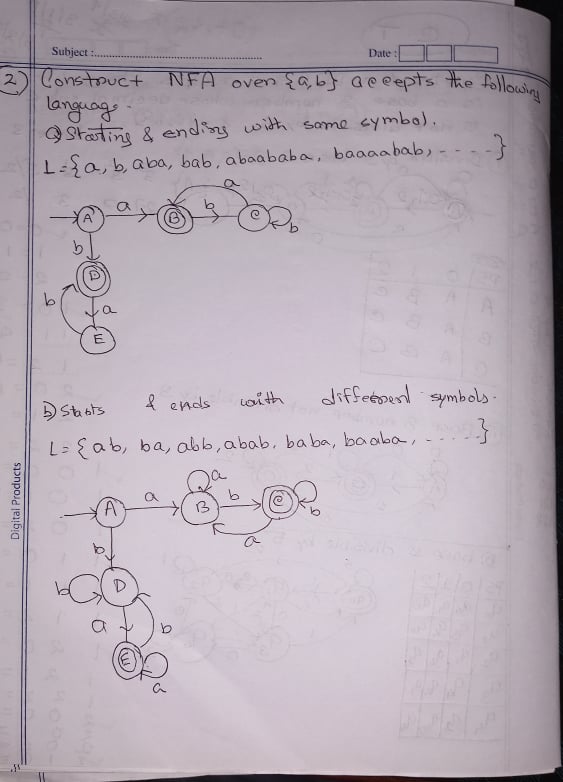 Subject :
Date :
2) Construct NFA over {a,b} accepts the following
language.
a) Starting & ending with same symbol.
L={a, b, aba, bab, abaababa, baaaabab, - - - -}
a
A a B b C b
b
D
b a
E
b) Starts & ends with different symbols.
L= {ab, ba, abb, abab, baba, baaba, - - - - -}
a
A a B b C b
a
b
b D
a b
E
a
Digital Products